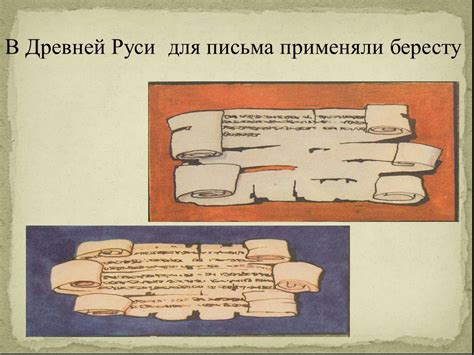 В Древней Руси для письма применяли бересту